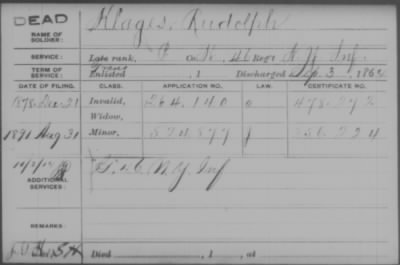 DEAD
NAME OF SOLDIER: Klages, Rudolph
SERVICE: Late rank, P Co. K, 46 Reg't N.Y. Inf.
TERM OF SERVICE: Enlisted , 1 Discharged Sep. 3, 1862
DATE OF FILING. CLASS. APPLICATION NO. LAW. CERTIFICATE NO.
1878 Dec 21 Invalid, 264,140 478.272
Widow,
1891 Aug 31 Minor, 524,877 356.224
ADDITIONAL SERVICES: F. 46 N.Y. Inf
REMARKS:
Died , 1 , at